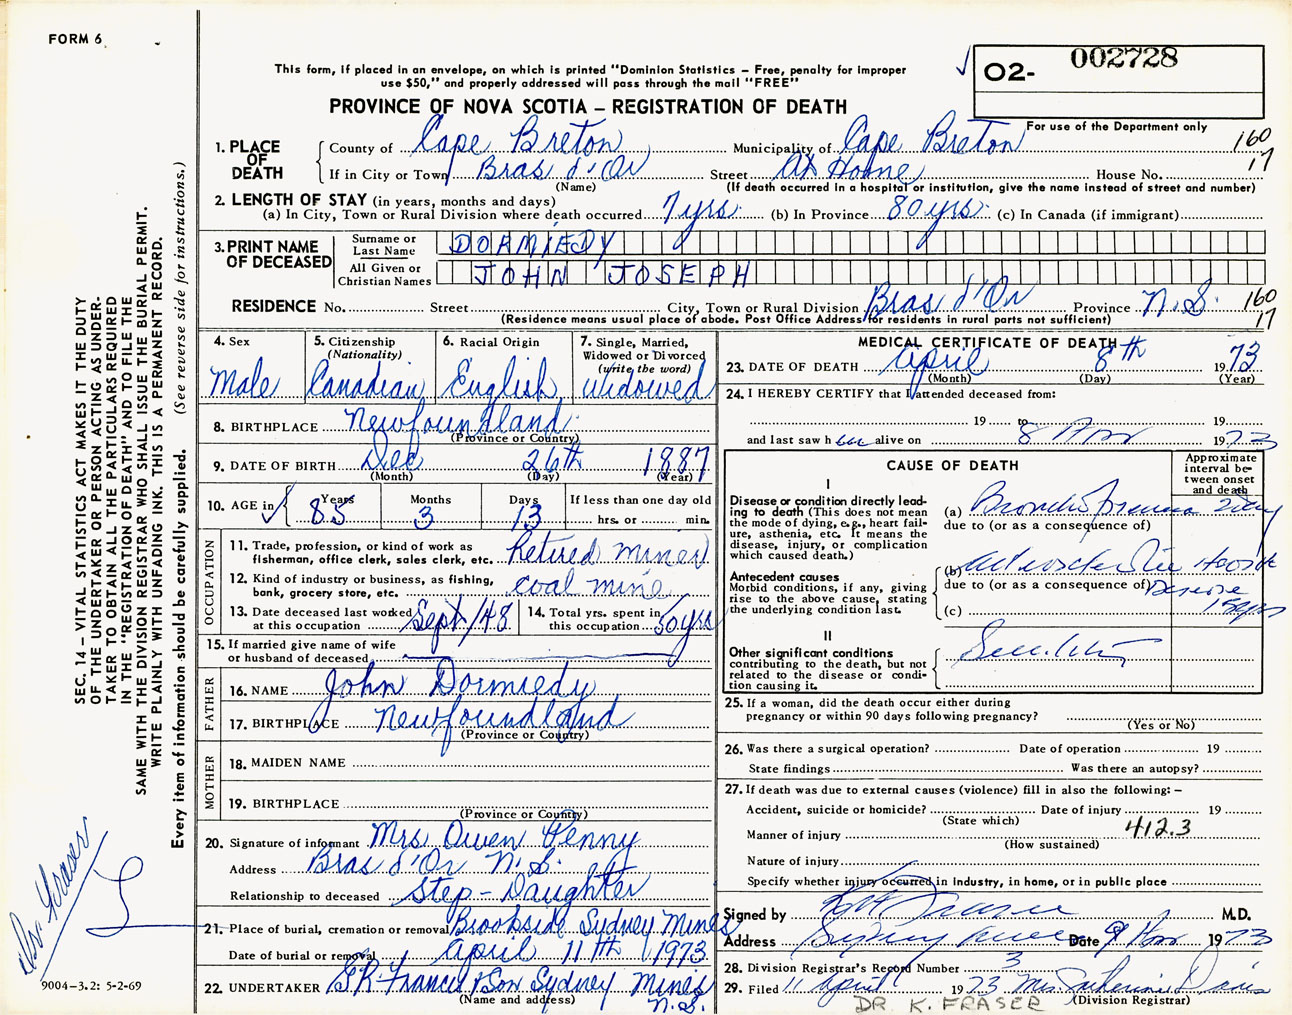 FORM 6
This form, if placed in an envelope, on which is printed "Dominion Statistics – Free, penalty for improper
use $50," and properly addressed will pass through the mail "FREE"
PROVINCE OF NOVA SCOTIA – REGISTRATION OF DEATH
O2- 002728
For use of the Department only
160
17
1. PLACE OF DEATH
County of Cape Breton Municipality of Cape Breton
If in City or Town Bras d'Or Street At Home House No.
(Name) (If death occurred in a hospital or institution, give the name instead of street and number)
2. LENGTH OF STAY (in years, months and days)
(a) In City, Town or Rural Division where death occurred 7 yrs. (b) In Province 80 yrs. (c) In Canada (if immigrant)
3. PRINT NAME OF DECEASED
Surname or Last Name DORMIEDY
All Given or Christian Names JOHN JOSEPH
RESIDENCE No. Street City, Town or Rural Division Bras d'Or Province N.S. 160
17
(Residence means usual place of abode. Post Office Address for residents in rural parts not sufficient)
4. Sex
Male
5. Citizenship
(Nationality)
Canadian
6. Racial Origin
English
7. Single, Married,
Widowed or Divorced
(write the word)
Widowed
8. BIRTHPLACE Newfoundland
(Province or Country)
9. DATE OF BIRTH Dec 26th 1887
(Month) (Day) (Year)
10. AGE in Years Months Days If less than one day old
85 3 13 hrs. or min.
OCCUPATION
11. Trade, profession, or kind of work as
fisherman, office clerk, sales clerk, etc. Retired miner
12. Kind of industry or business, as fishing,
bank, grocery store, etc. coal mine
13. Date deceased last worked
at this occupation Sept/48
14. Total yrs. spent in
this occupation 50 yrs
15. If married give name of wife
or husband of deceased
FATHER
16. NAME John Dormiedy
17. BIRTHPLACE Newfoundland
(Province or Country)
MOTHER
18. MAIDEN NAME
19. BIRTHPLACE
(Province or Country)
20. Signature of informant Mrs Owen Penny
Address Bras d'Or N.S.
Relationship to deceased Step-Daughter
21. Place of burial, cremation or removal Brookside Sydney Mines
Date of burial or removal April 11th 1973
22. UNDERTAKER Francis & Son Sydney Mines
N.S.
(Name and address)
MEDICAL CERTIFICATE OF DEATH
23. DATE OF DEATH April 8th 1973
(Month) (Day) (Year)
24. I HEREBY CERTIFY that I attended deceased from:
19 to 19
and last saw him alive on 8 Apr 1973
CAUSE OF DEATH
Approximate
interval be-
tween onset
and death
I
Disease or condition directly lead-
ing to death (This does not mean
the mode of dying, e.g., heart fail-
ure, asthenia, etc. It means the
disease, injury, or complication
which caused death.)
(a) Broncho 2 day
due to (or as a consequence of)
Antecedent causes
Morbid conditions, if any, giving
rise to the above cause, stating
the underlying condition last.
(b) Heart
due to (or as a consequence of) Disease
(c)
II
Other significant conditions
contributing to the death, but not
related to the disease or condi-
tion causing it.
Senility
25. If a woman, did the death occur either during
pregnancy or within 90 days following pregnancy?
(Yes or No)
26. Was there a surgical operation? Date of operation 19
State findings Was there an autopsy?
27. If death was due to external causes (violence) fill in also the following:–
Accident, suicide or homicide? Date of injury 19
(State which)
412.3
Manner of injury
(How sustained)
Nature of injury
Specify whether injury occurred in industry, in home, or in public place
Signed by Fraser M.D.
Address Sydney Mines Date 9 Apr 1973
28. Division Registrar's Record Number 3
29. Filed 11 April 1973 Mrs Catherine Davis
(Division Registrar)
DR. K. FRASER
SEC. 14 – VITAL STATISTICS ACT MAKES IT THE DUTY
OF THE UNDERTAKER OR PERSON ACTING AS UNDER-
TAKER TO OBTAIN ALL THE PARTICULARS REQUIRED
IN THE "REGISTRATION OF DEATH" AND TO FILE THE
SAME WITH THE DIVISION REGISTRAR WHO SHALL ISSUE THE BURIAL PERMIT.
WRITE PLAINLY WITH UNFADING INK. THIS IS A PERMANENT RECORD.
Every item of information should be carefully supplied. (See reverse side for instructions.)
Dr. Fraser
9004–3.2: 5-2-69